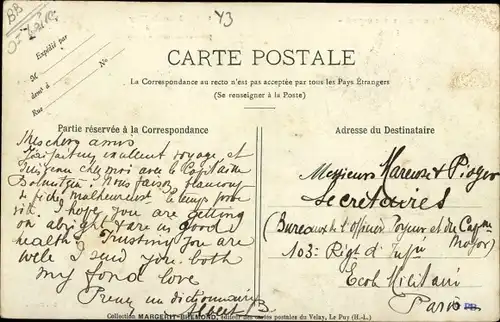 BB
43
Expédié par
M
demt à
Rue
No
CARTE POSTALE
La Correspondance au recto n'est pas acceptée par tous les Pays Étrangers
(Se renseigner à la Poste)
Partie réservée à la Correspondance
Adresse du Destinataire
Mes chers amis
J'ai fait un excellent voyage et
suis chez moi avec le Capitaine
Nous faisons beaucoup
de malheureusement le temps passe
vite. I hope you are getting
on alright & are in good
health. Trusting you are
well I send you both
my fond love
Prenez un dictionnaire
Albert B.
Messieurs Mareuse & Pioger
Secrétaires
(Bureaux de l'officier Payeur et du Capne
Major)
103e Régt d'Infie
Ecole Militaire
Paris
Collection MARGERIT-BRÉMOND, éditeur des cartes postales du Velay, Le Puy (H.-L.)